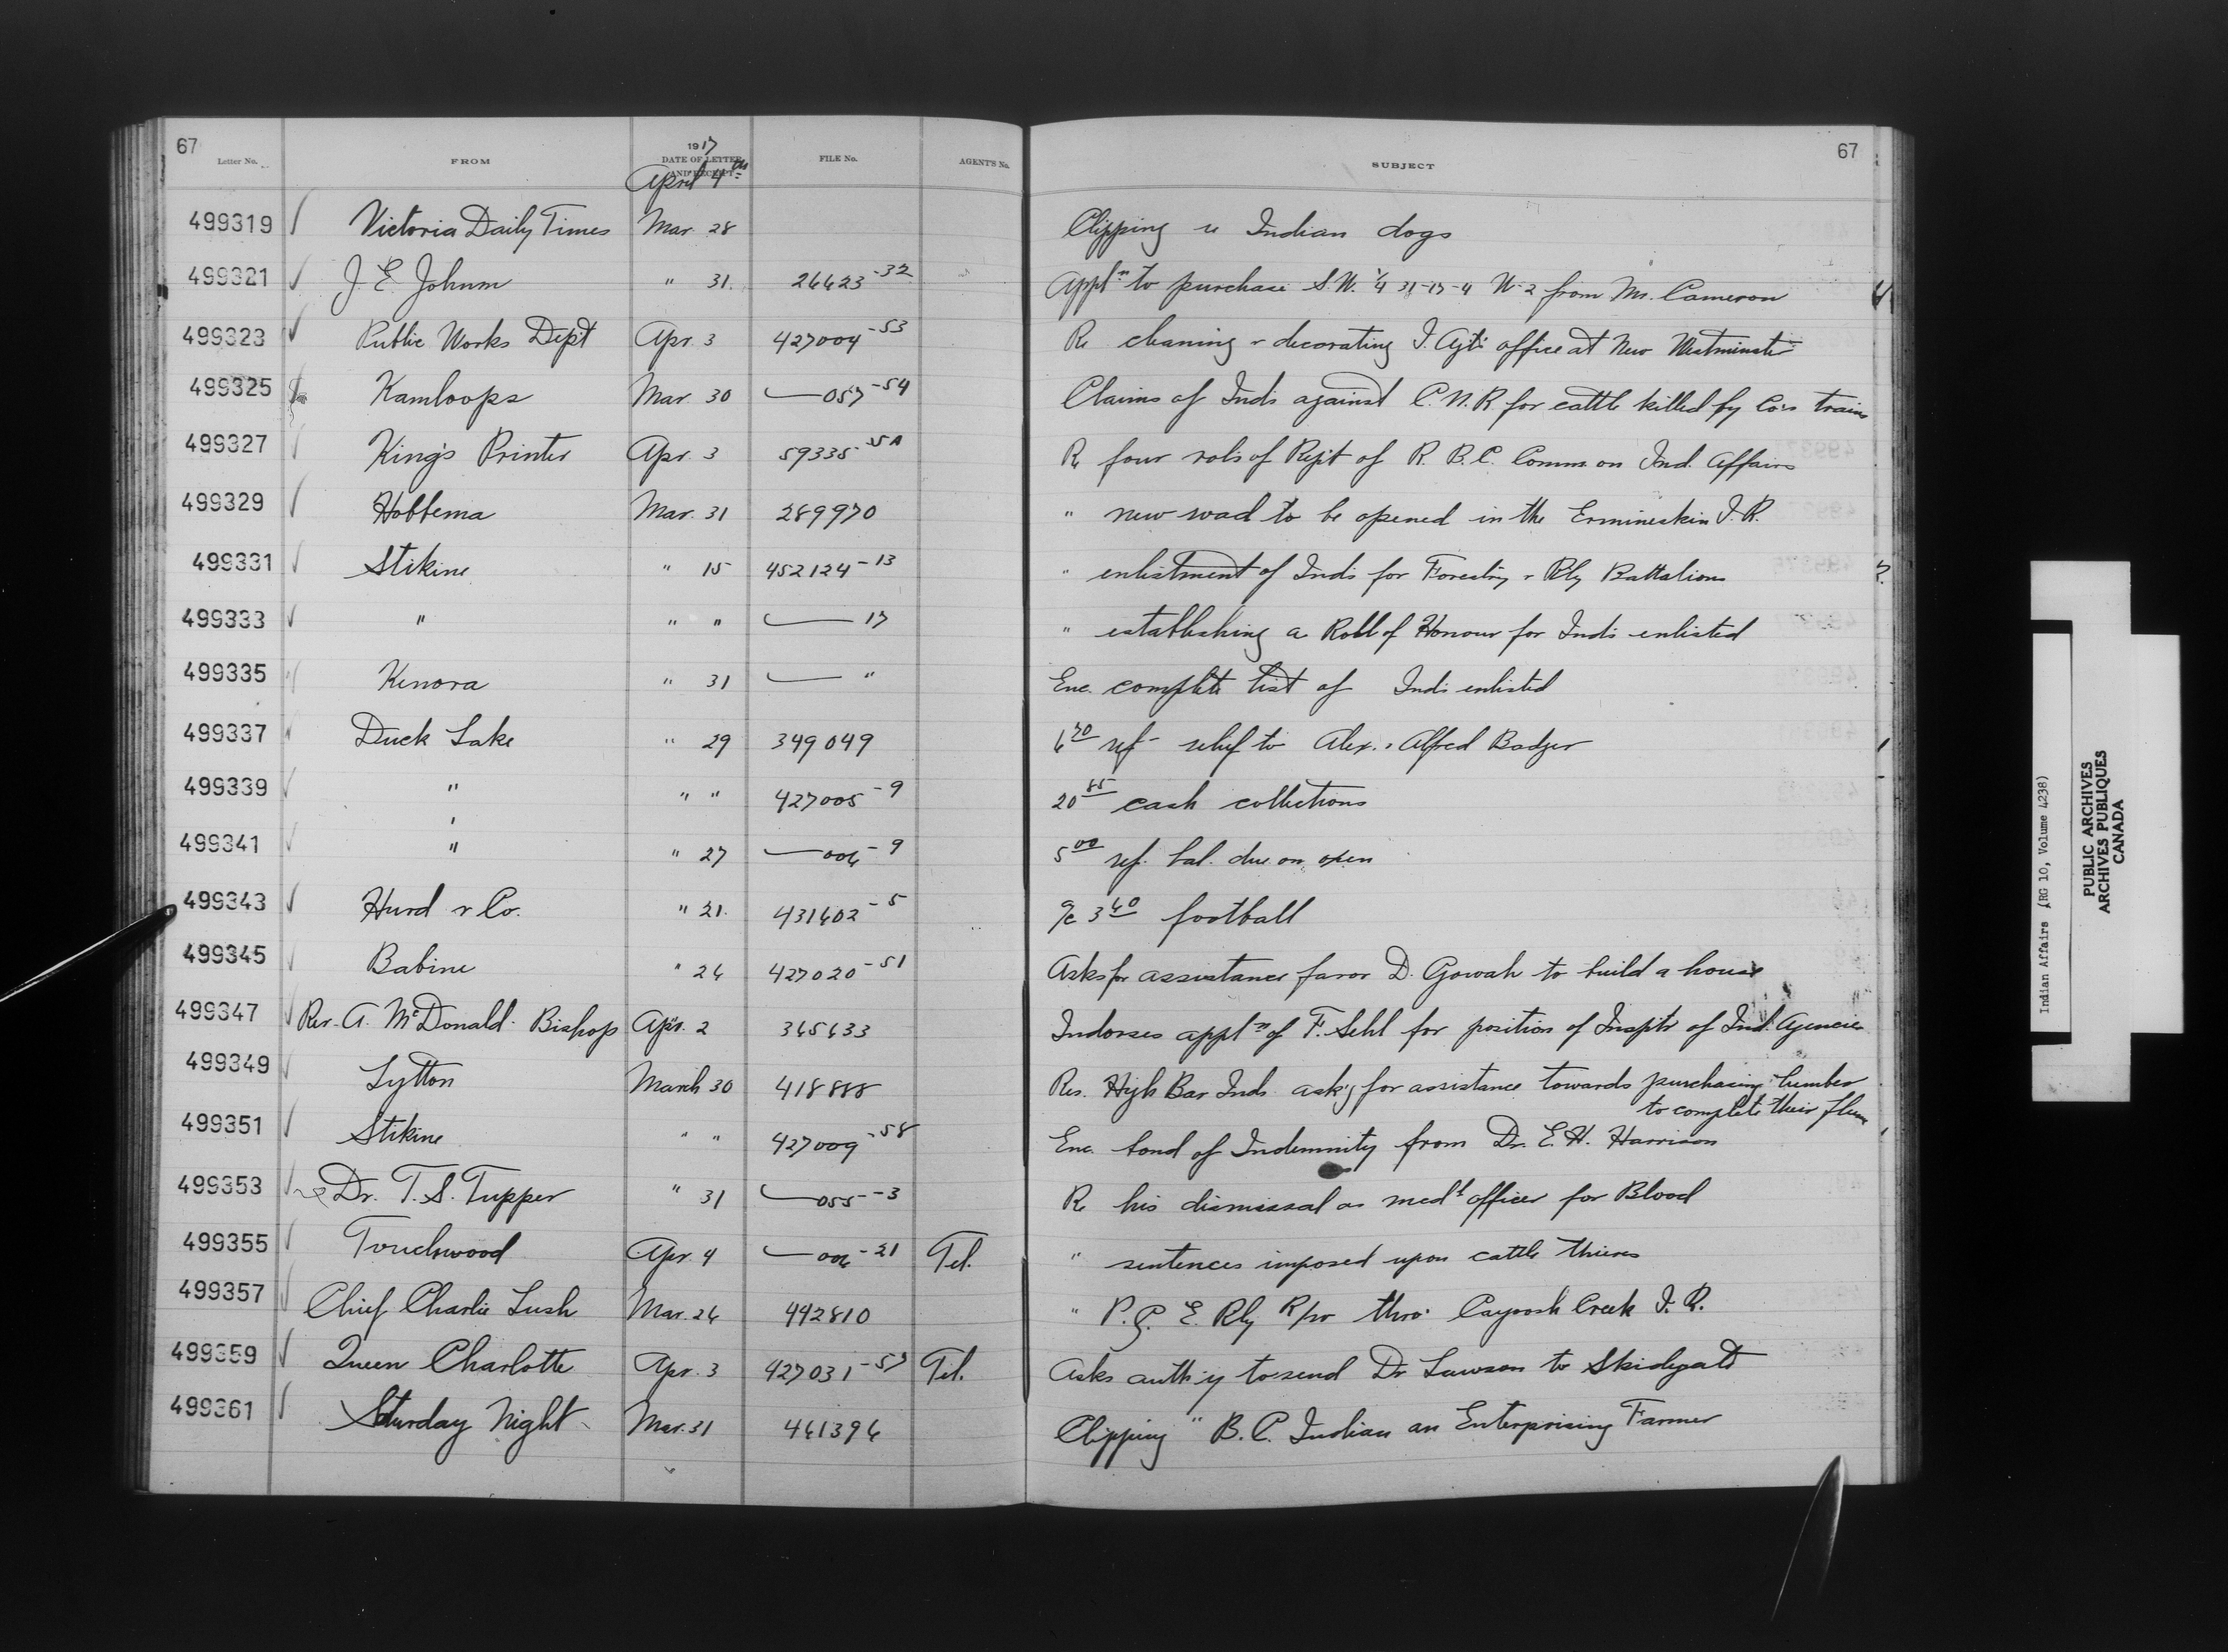 67
Letter No.
FROM
1917
DATE OF LETTER
AND RECEIPT
April 4th
FILE No.
AGENT'S No.
SUBJECT
67
499319 Victoria Daily Times Mar. 28 Clipping re Indian dogs
499321 J. E. Johnm " 31. 26623-32 Appln to purchase S.W. 1/4 31-17-4 W-2 from Mr. Cameron
499323 Public Works Dept Apr. 3 427004-53 Re cleaning & decorating I. Agt's office at New Westminster
499325 Kamloops Mar. 30 —057-54 Claims of Inds against C.N.R for cattle killed by Co's trains
499327 King's Printer Apr. 3 59335 Re four vols of Rept of R. B.C. Comm on Ind. Affairs
499329 Hobbema Mar. 31 289970 " new road to be opened in the Ermineskin I.R.
499331 Stikine " 15 452124-13 " enlistment of Inds for Forestry & Rly Battalions
499333 " " " —17 " establishing a Roll of Honour for Inds enlisted
499335 Kenora " 31 — " Enc. complete list of Inds enlisted
499337 Duck Lake " 29 349049 6 70 ref- relief to Alex. & Alfred Badger
499339 " " " 427005-9 20 85 cash collections
499341 " " 27 —006-9 5 00 ref. bal. due on oxen
499343 Hurd & Co. " 21. 431602-5 a/c 3 60 football
499345 Babine " 26 427020-51 Asks for assistance favor D. Gowah to build a house
499347 Rev. A. McDonald. Bishop Apr. 2 365633 Indorses appln of F. Sehl for position of Insptr of Ind. Agencies
499349 Lytton March 30 418888 Res. High Bar Inds ask'g for assistance towards purchasing lumber
to complete their flume
499351 Stikine " " 427009-58 Enc. bond of Indemnity from Dr. E. H. Harrison
499353 Dr. T. S. Tupper " 31 —055-3 Re his dismissal as medl officer for Blood
499355 Touchwood Apr. 4 —006-21 Tel. " sentences imposed upon cattle thieves
499357 Chief Charlie Lush Mar. 26 442810 " P. G. E. Rly R/w thro' Cayoosh Creek I. R.
499359 Queen Charlotte Apr. 3 427031-57 Tel. Asks auth'y to send Dr Lawson to Skidegate
499361 Saturday Night Mar. 31 461396 Clipping " B.C. Indian an Enterprising Farmer
Indian Affairs (RG 10, Volume 4238)
PUBLIC ARCHIVES
ARCHIVES PUBLIQUES
CANADA